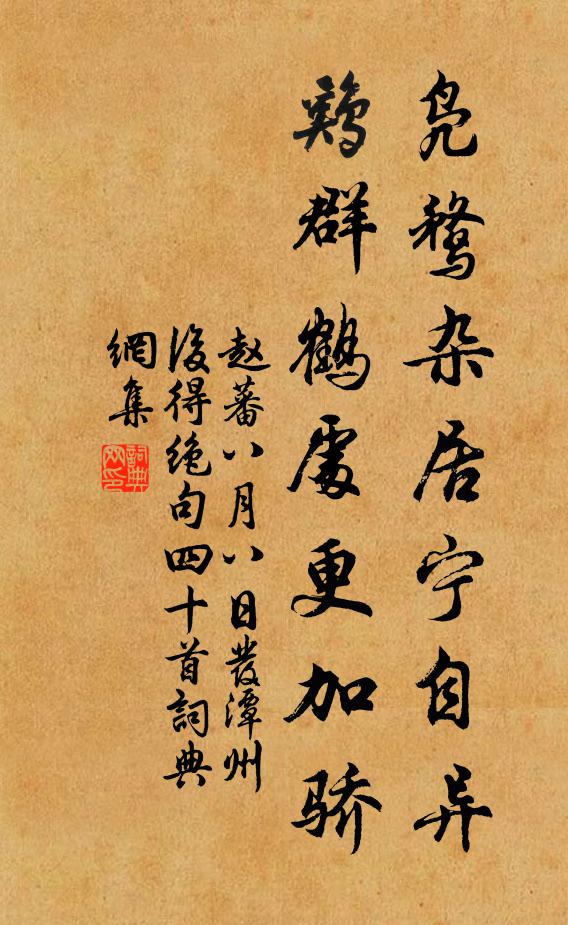 凫鹜杂居宁自异
鸡群鹤处更加骄
赵蕃八月八日發潭州
後得绝句四十首詞典
網集
詞典
网印